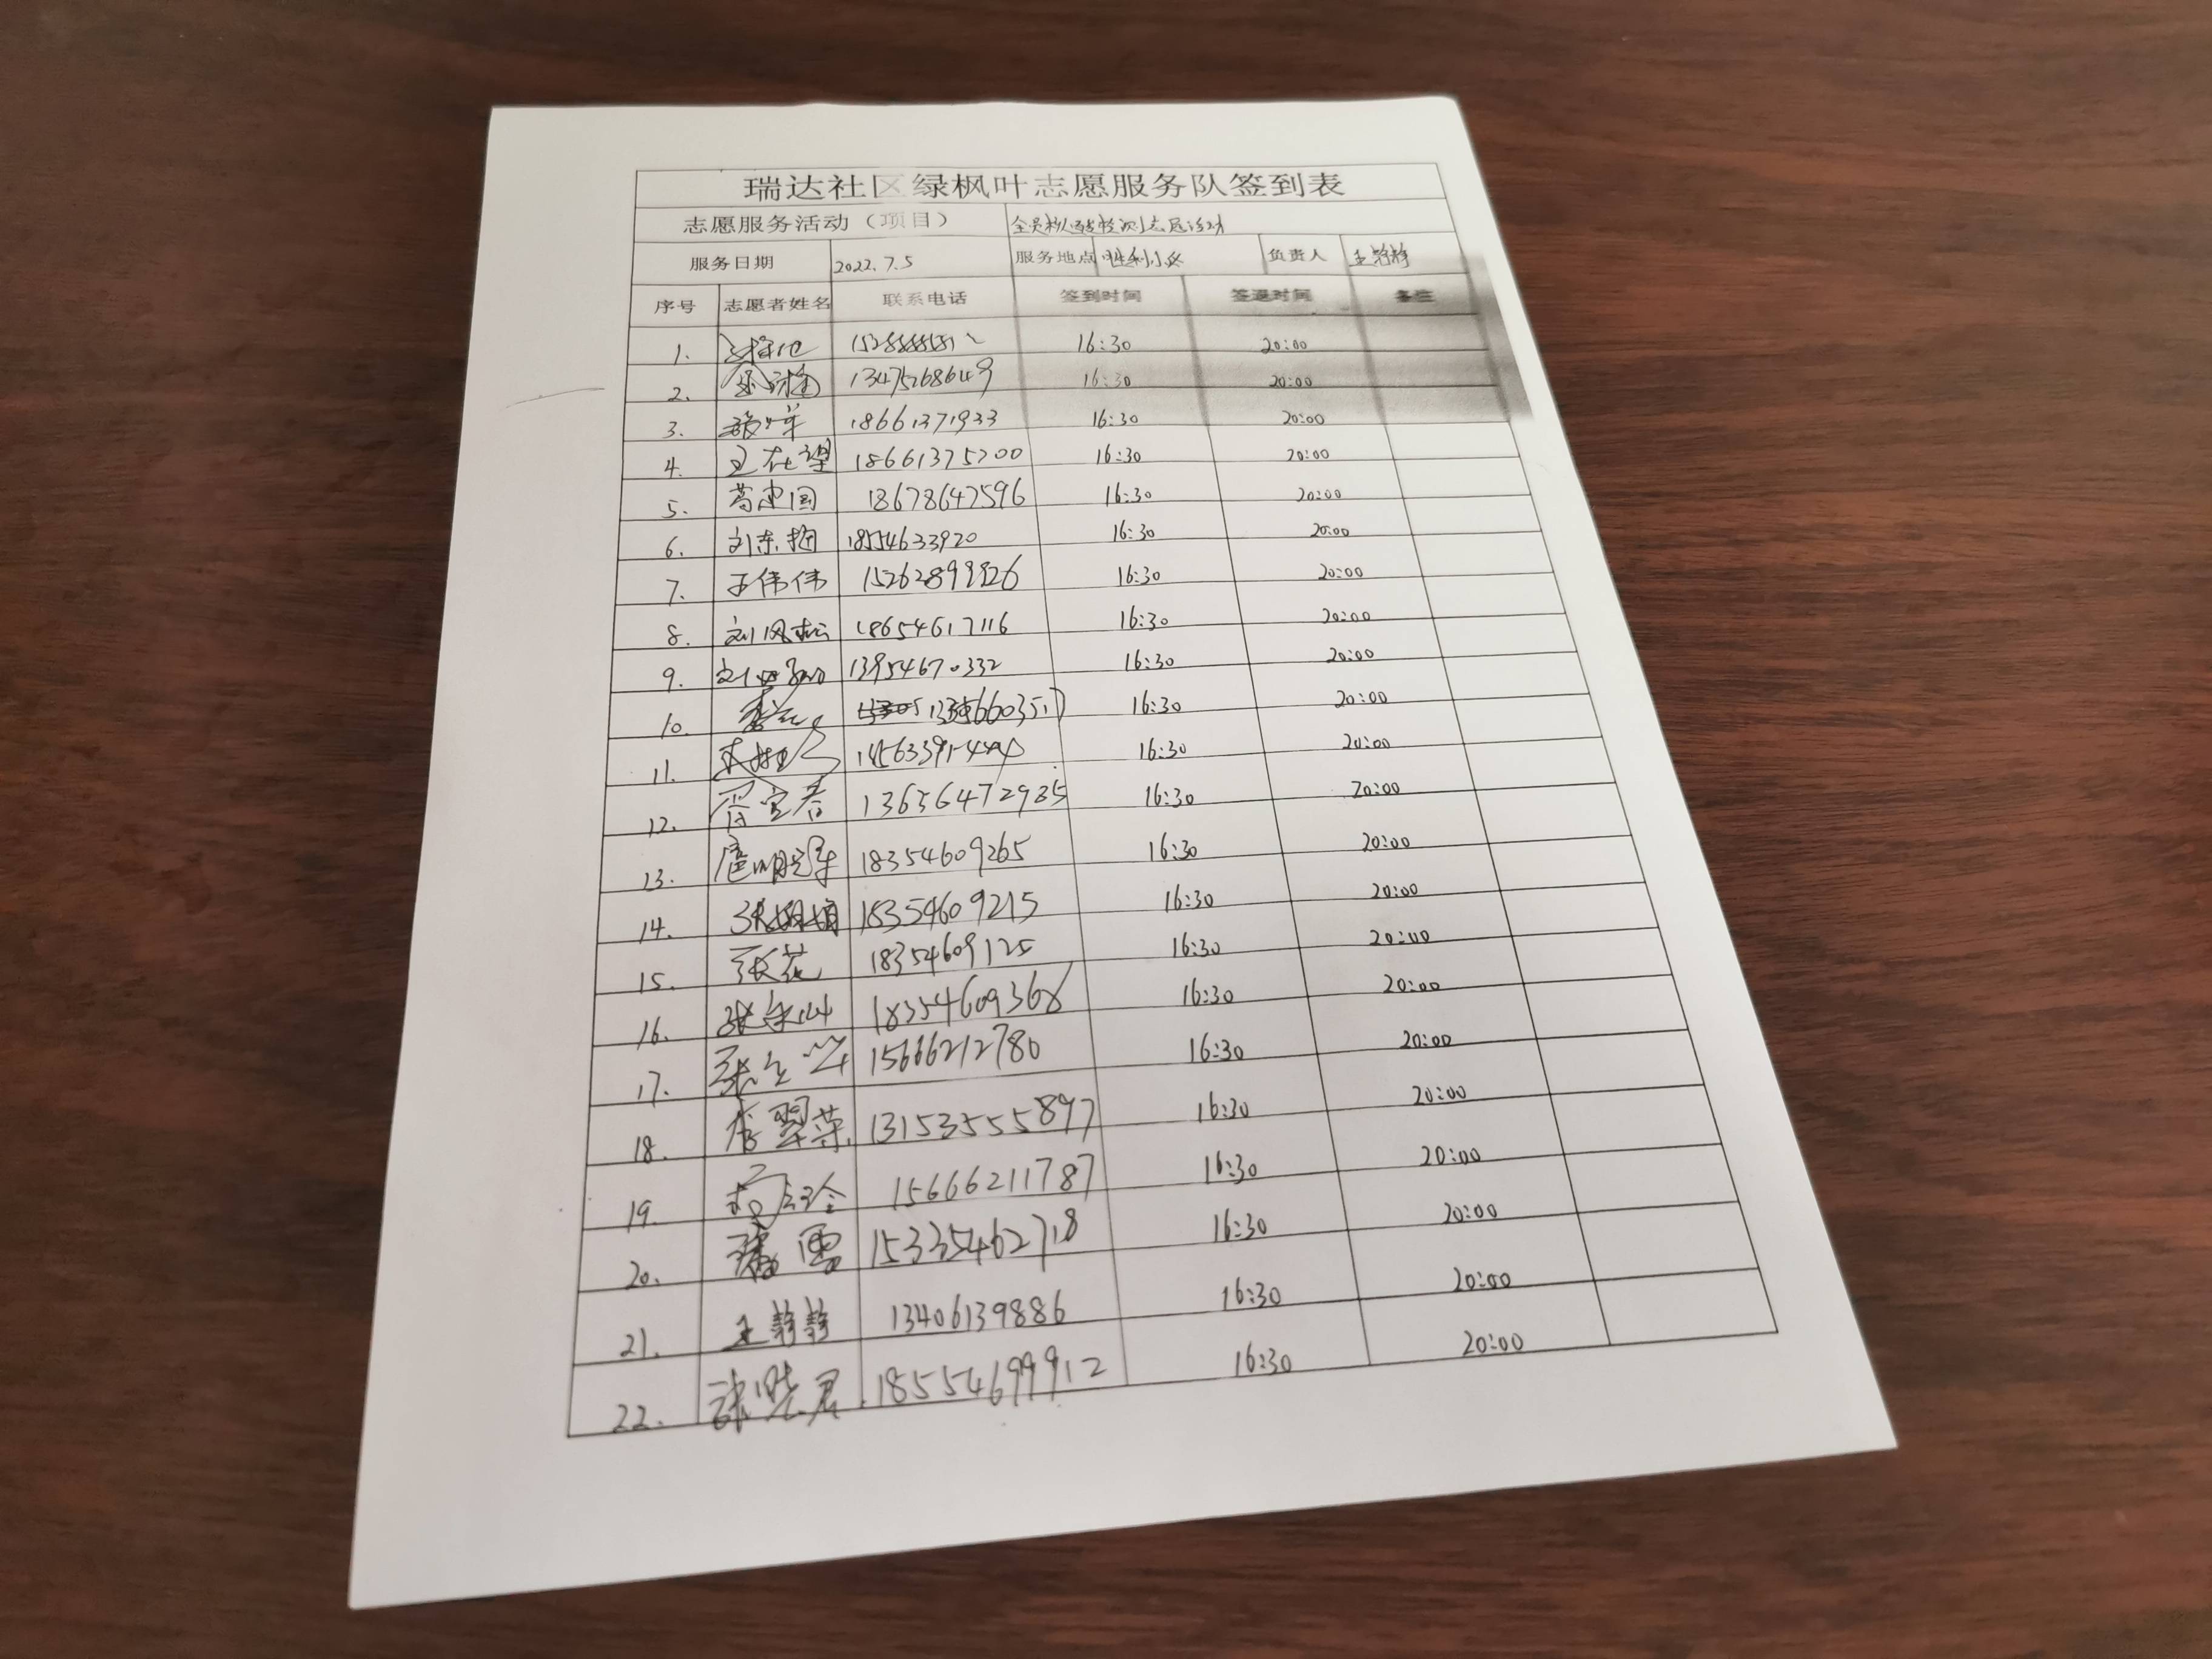 瑞达社区绿枫叶志愿服务队签到表
志愿服务活动（项目） 全员核酸检测志愿活动
服务日期 2022.7.5 服务地点 胜利小区 负责人 王静静
序号 志愿者姓名 联系电话 签到时间 签退时间 备注
1. 16:30 20:00
2. 13475268649 16:30 20:00
3. 18661371933 16:30 20:00
4. 王在望 18661375200 16:30 20:00
5. 葛建国 18678647596 16:30 20:00
6. 刘东梅 18554633920 16:30 20:00
7. 王伟伟 15262899826 16:30 20:00
8. 刘风松 18654617116 16:30 20:00
9. 13954670332 16:30 20:00
10. 16:30 20:00
11. 16:30 20:00
12. 胥宝春 13656472985 16:30 20:00
13. 18354609265 16:30 20:00
14. 张娟娟 18354609215 16:30 20:00
15. 张花 18354609125 16:30 20:00
16. 18354609368 16:30 20:00
17. 15666212780 16:30 20:00
18. 李翠荣 13153555897 16:30 20:00
19. 15666211787 16:30 20:00
20. 15335462718 16:30 20:00
21. 王静静 13406139886 16:30 20:00
22. 张晓君 18554699912 16:30 20:00